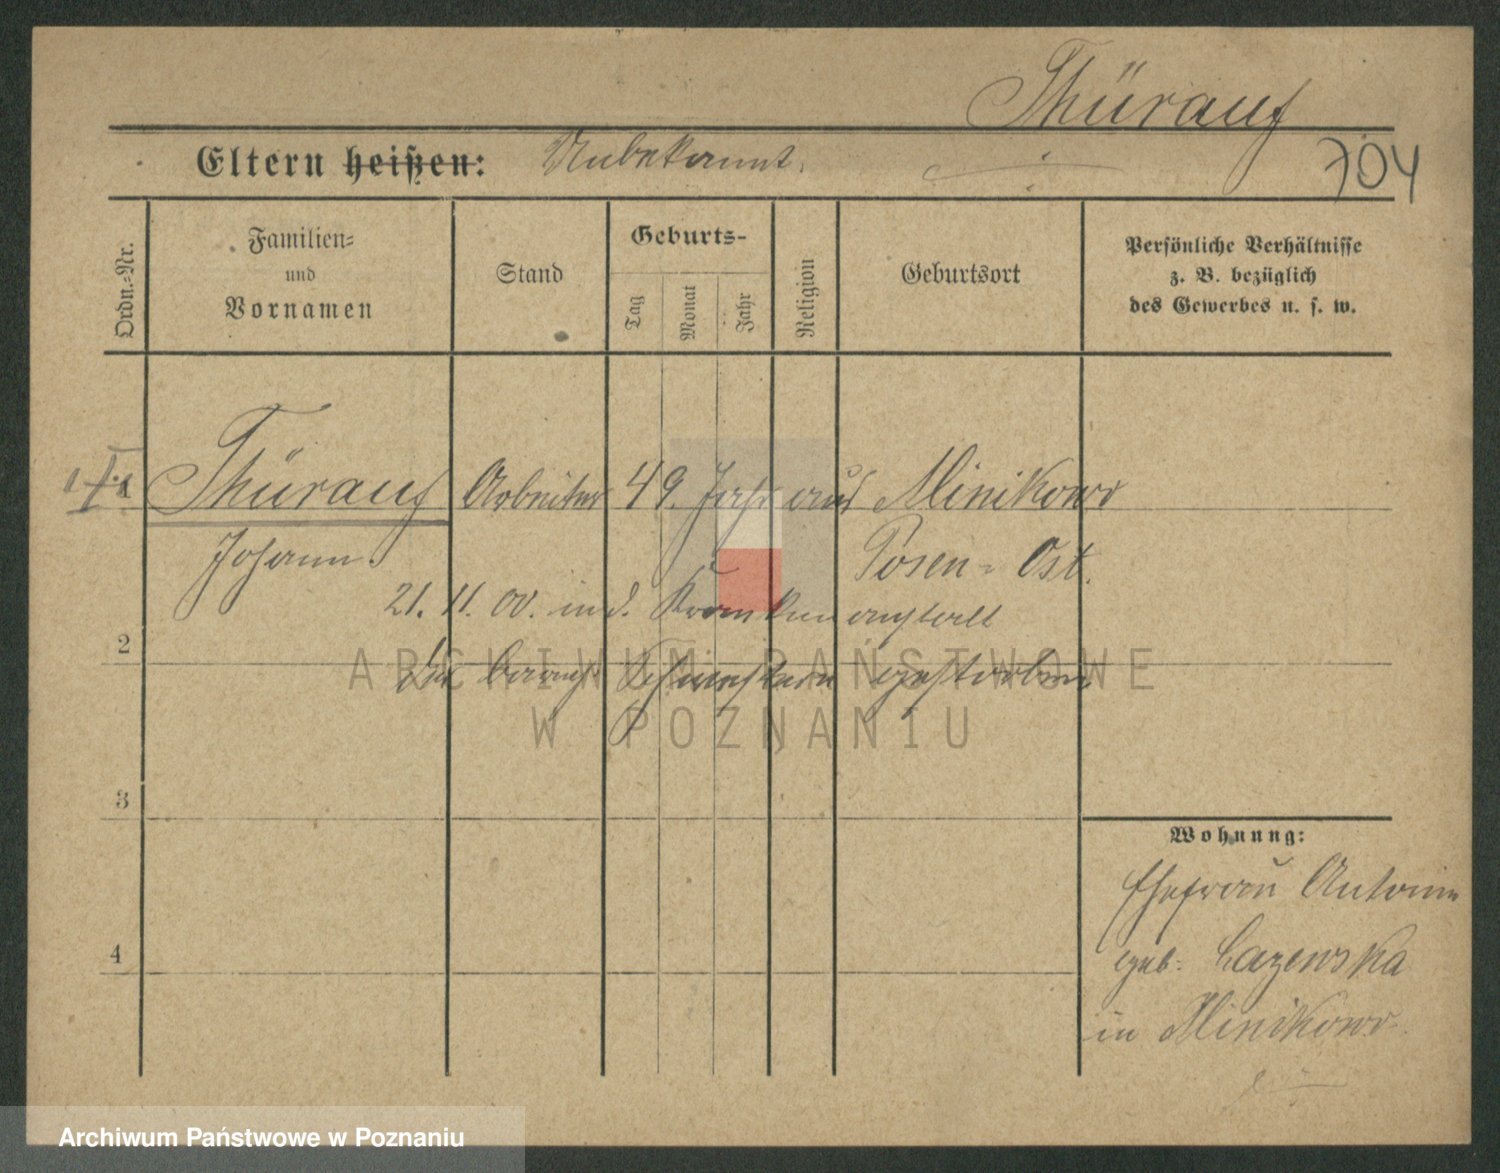 Thürauf
Eltern heißen: Unbekannt.
704
Ordn.-Nr.
Familien-
und
Vornamen
Stand
Geburts-
Tag
Monat
Jahr
Religion
Geburtsort
Persönliche Verhältnisse
z. B. bezüglich
des Gewerbes u. s. w.
Thürauf Arbeiter 49. Jahr aus Minikowo
Johann Posen-Ost.
21. 11. 00. in d. Krankenanstalt
2
der barmh. Schwestern gestorben
ARCHIWUM PAŃSTWOWE
W POZNANIU
3
Wohnung:
Ehefrau Antonie
4
geb. Lazewska
in Minikowo
Archiwum Państwowe w Poznaniu